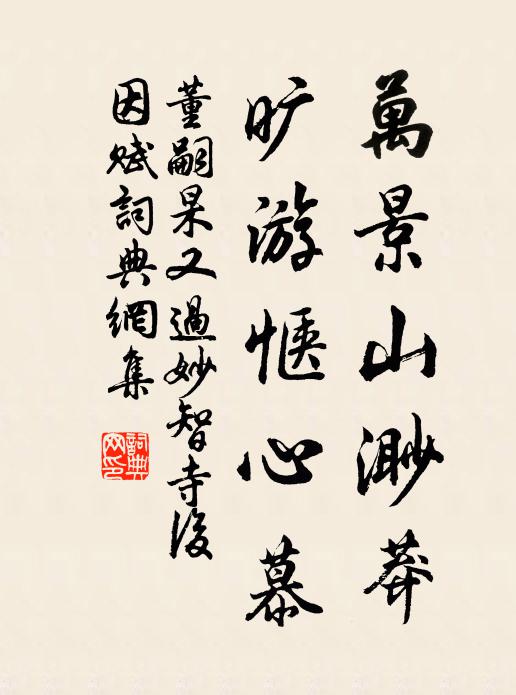 萬景山渺莽
旷游惬心慕
董嗣杲又過妙智寺後
因赋詞典網集
詞典
网印